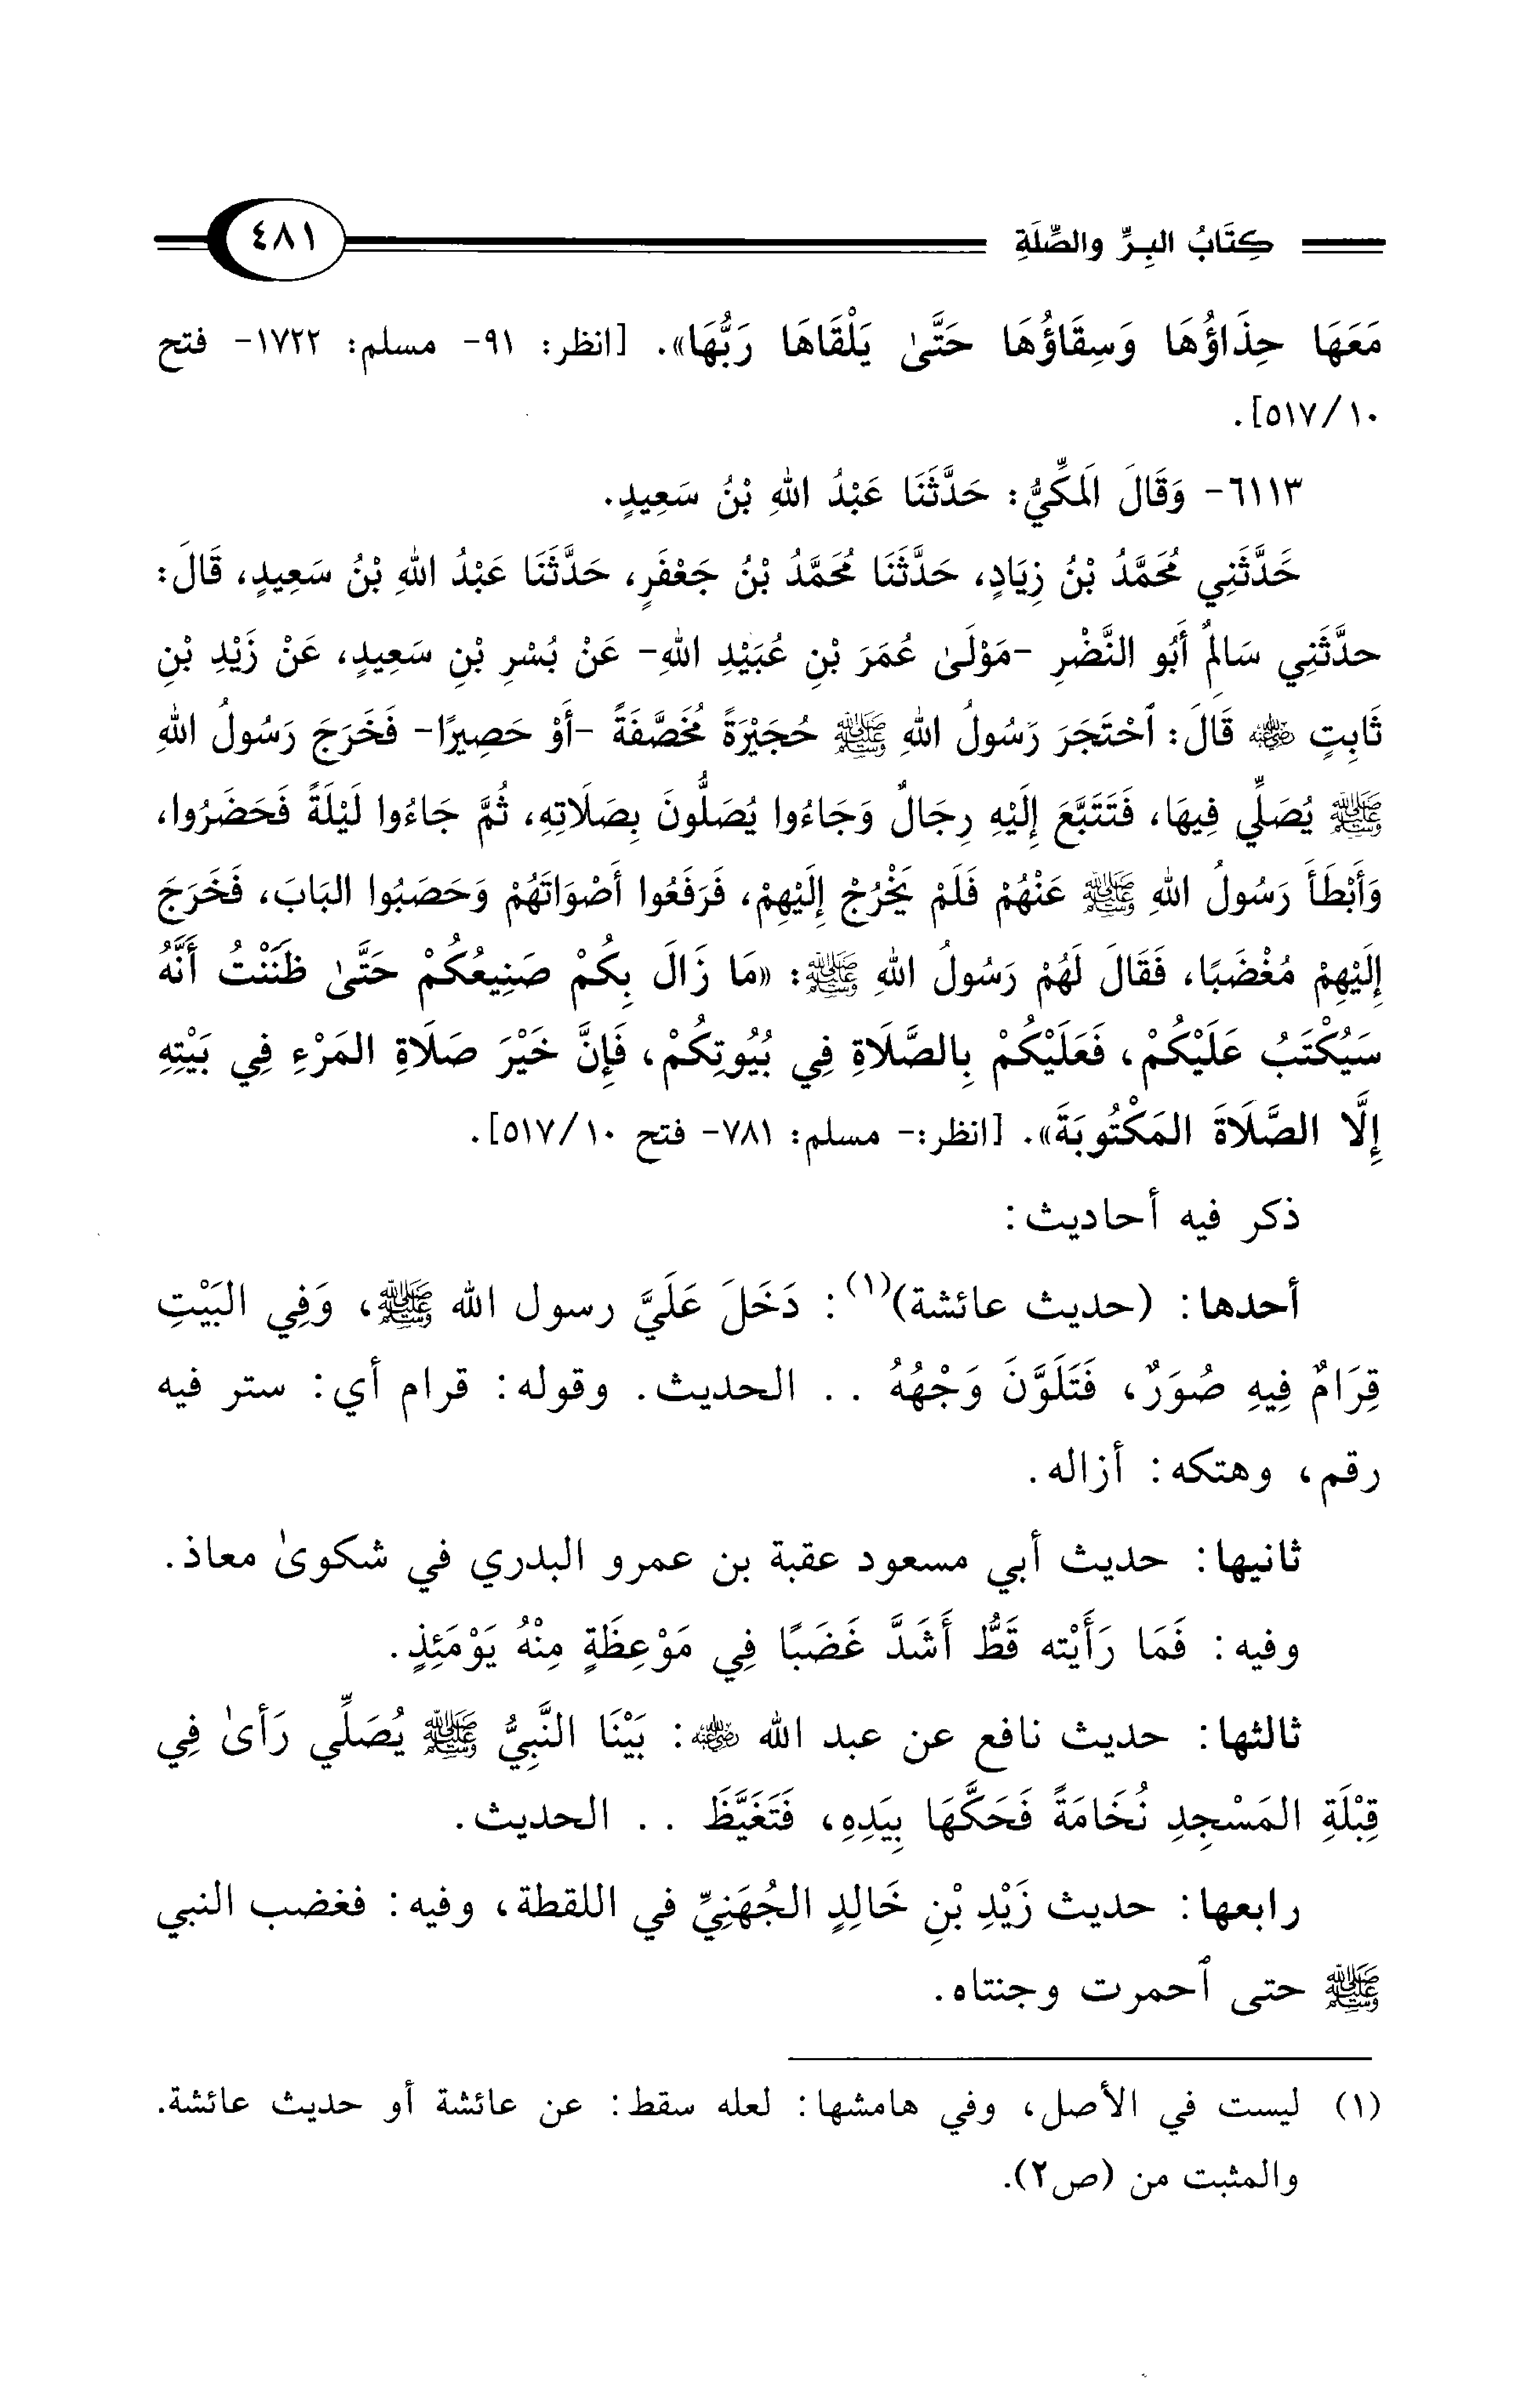 كِتَابُ البِرِّ والصِّلَةِ ٤٨١
مَعَهَا حِذَاؤُهَا وَسِقَاؤُهَا حَتَّىٰ يَلْقَاهَا رَبُّهَا». [انظر: ٩١- مسلم: ١٧٢٢- فتح
١٠/٥١٧].
٦١١٣- وَقَالَ المَكِّيُّ: حَدَّثَنَا عَبْدُ اللهِ بْنُ سَعِيدٍ.
حَدَّثَنِي مُحَمَّدُ بْنُ زِيَادٍ، حَدَّثَنَا مُحَمَّدُ بْنُ جَعْفَرٍ، حَدَّثَنَا عَبْدُ اللهِ بْنُ سَعِيدٍ، قَالَ:
حدَّثَنِي سَالِمٌ أَبُو النَّضْرِ -مَوْلَىٰ عُمَرَ بْنِ عُبَيْدِ اللهِ- عَنْ بُسْرِ بْنِ سَعِيدٍ، عَنْ زَيْدِ بْنِ
ثَابِتٍ رضي الله عنه قَالَ: ٱحْتَجَرَ رَسُولُ اللهِ ﷺ حُجَيْرَةً مُخَصَّفَةً -أَوْ حَصِيرًا- فَخَرَجَ رَسُولُ اللهِ
ﷺ يُصَلِّي فِيهَا، فَتَتَبَّعَ إِلَيْهِ رِجَالٌ وَجَاءُوا يُصَلُّونَ بِصَلَاتِهِ، ثُمَّ جَاءُوا لَيْلَةً فَحَضَرُوا،
وَأَبْطَأَ رَسُولُ اللهِ ﷺ عَنْهُمْ فَلَمْ يَخْرُجْ إِلَيْهِمْ، فَرَفَعُوا أَصْوَاتَهُمْ وَحَصَبُوا البَابَ، فَخَرَجَ
إِلَيْهِمْ مُغْضَبًا، فَقَالَ لَهُمْ رَسُولُ اللهِ ﷺ: «مَا زَالَ بِكُمْ صَنِيعُكُمْ حَتَّىٰ ظَنَنْتُ أَنَّهُ
سَيُكْتَبُ عَلَيْكُمْ، فَعَلَيْكُمْ بِالصَّلَاةِ فِي بُيُوتِكُمْ، فَإِنَّ خَيْرَ صَلَاةِ المَرْءِ فِي بَيْتِهِ
إِلَّا الصَّلَاةَ المَكْتُوبَةَ». [انظر:- مسلم: ٧٨١- فتح ١٠/٥١٧].
ذكر فيه أحاديث:
أحدها: (حديث عائشة)(١): دَخَلَ عَلَيَّ رسول الله ﷺ، وَفِي البَيْتِ
قِرَامٌ فِيهِ صُوَرٌ، فَتَلَوَّنَ وَجْهُهُ .. الحديث. وقوله: قرام أي: ستر فيه
رقم، وهتكه: أزاله.
ثانيها: حديث أبي مسعود عقبة بن عمرو البدري في شكوىٰ معاذ.
وفيه: فَمَا رَأَيْته قَطُّ أَشَدَّ غَضَبًا فِي مَوْعِظَةٍ مِنْهُ يَوْمَئِذٍ.
ثالثها: حديث نافع عن عبد الله رضي الله عنه: بَيْنَا النَّبِيُّ ﷺ يُصَلِّي رَأىٰ فِي
قِبْلَةِ المَسْجِدِ نُخَامَةً فَحَكَّهَا بِيَدِهِ، فَتَغَيَّظَ .. الحديث.
رابعها: حديث زَيْدِ بْنِ خَالِدٍ الجُهَنِيِّ في اللقطة، وفيه: فغضب النبي
ﷺ حتى ٱحمرت وجنتاه.
(١) ليست في الأصل، وفي هامشها: لعله سقط: عن عائشة أو حديث عائشة.
والمثبت من (ص٢).